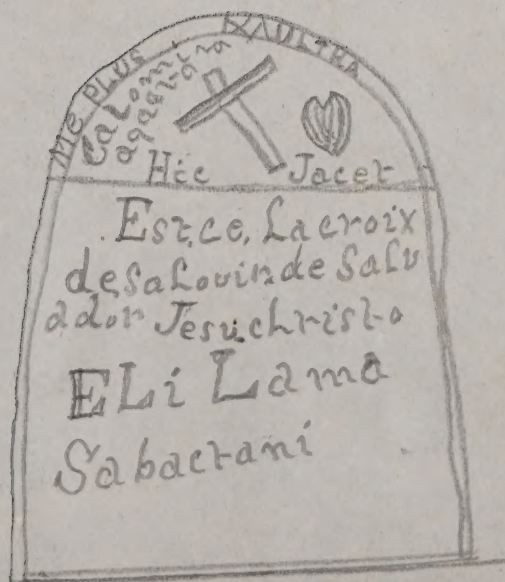 NE PLUS IXAULTRA
Hec Jacet
Est,ce, Lacroix
desalouinde Salv
ador Jesu.christo
ELi Lama
Sabactani